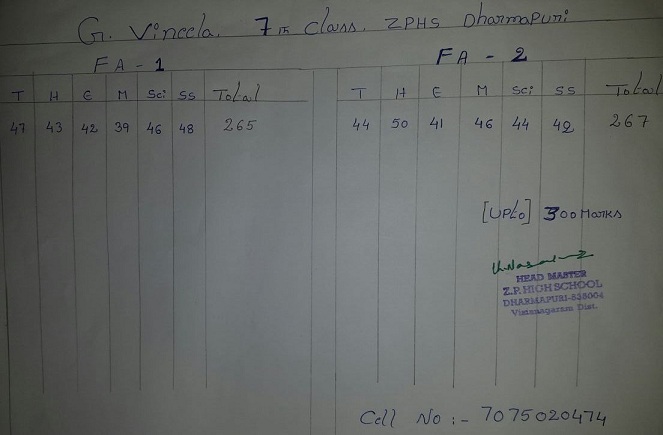 G. Vineela. 7th Class. ZPHS Dharmapuri
FA - 1 FA - 2
T H E M Sci SS Total T H E M Sci SS Total
47 43 42 39 46 48 265 44 50 41 46 44 42 267
[Upto] 300 Marks
HEAD MASTER
Z.P. HIGH SCHOOL
DHARMAPURI-535004
Vizianagaram Dist.
Cell No :- 7075020474